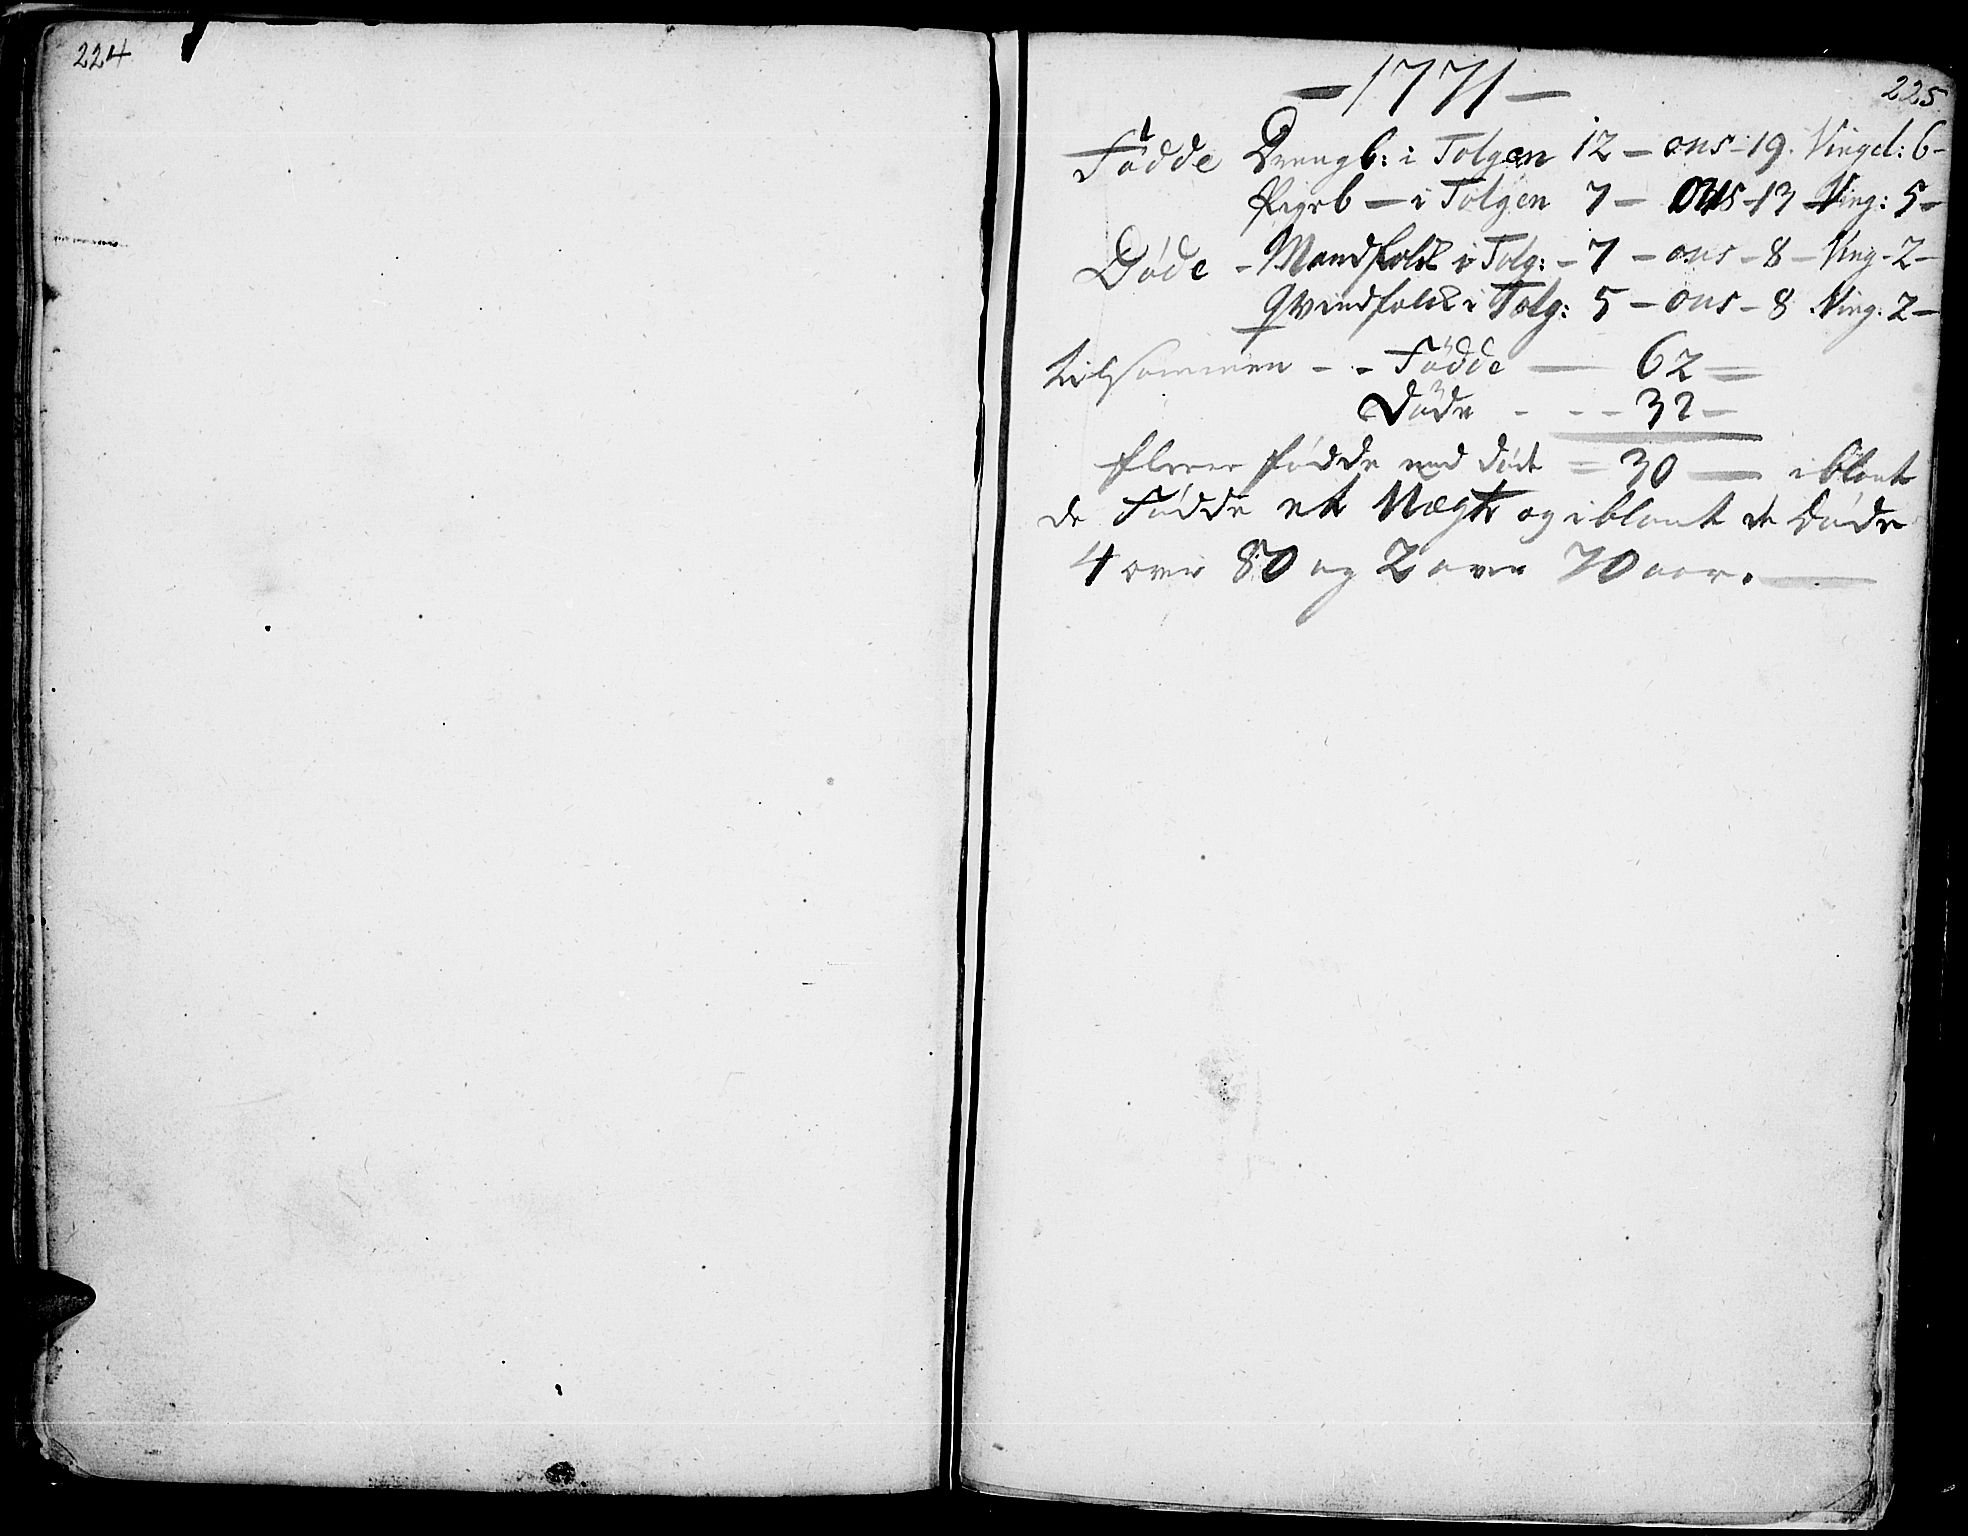 224
225
— 1771 —
Födde Drengb: i Tolgen 12 — ons - 19. Vingel: 6 -
Pigeb — i Tolgen 7 — ons - 13 - Ving: 5 -
Døde - Mandfolk i Tolg: - 7 - ons - 8 - Ving - 2 -
Qvindfolk i Tolg: 5 — ons - 8 Ving: 2 -
tilsammen - - Födde — 62 =
Døde - - - 32 -
flere födde end døde = 30 — iblant
de Födde et Uægte og iblant de Døde
4 over 80 og 2 over 70 aar. —